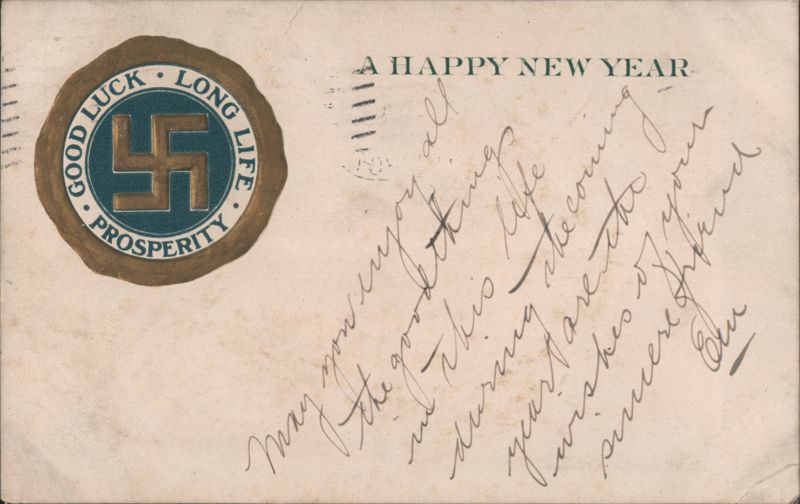 GOOD LUCK · LONG LIFE · PROSPERITY ·
A HAPPY NEW YEAR
May you enjoy all
the good things
in this life
during the coming
year are the
wishes of your
sincere friend
Em